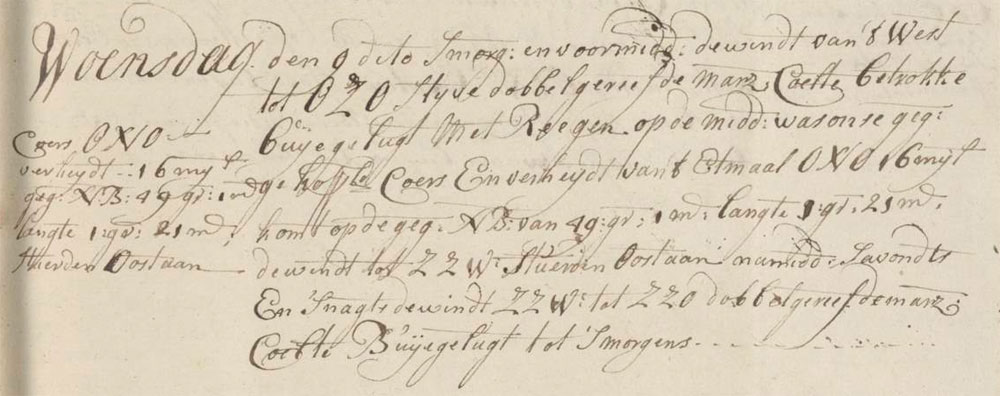 Woensdag den 9 dito Smorg: en voormidd: de windt van 't West
tot OZO Styve dobbelgereefde marz Coelte betrokke
buÿegelugt Met Reegen op de midd: was onse geg:
gekopple Coers En verheydt van 't Etmaal ONO 16 myl
komt op de geg: NB: van 49: gr: 1 md: langte 1: gr: 21 md:
de windt tot ZZW: Stuerden Oostaan namidd: Savondts
En Snagts de windt ZZW: tot ZZO dobbelgereefde marz:
Coelte Buÿegelugt tot Smorgens
Coers ONO
verheydt 16 myl
geg: NB: 49 gr: 1 md
langte 1: gr: 21 md:
Stuerden Oostaan